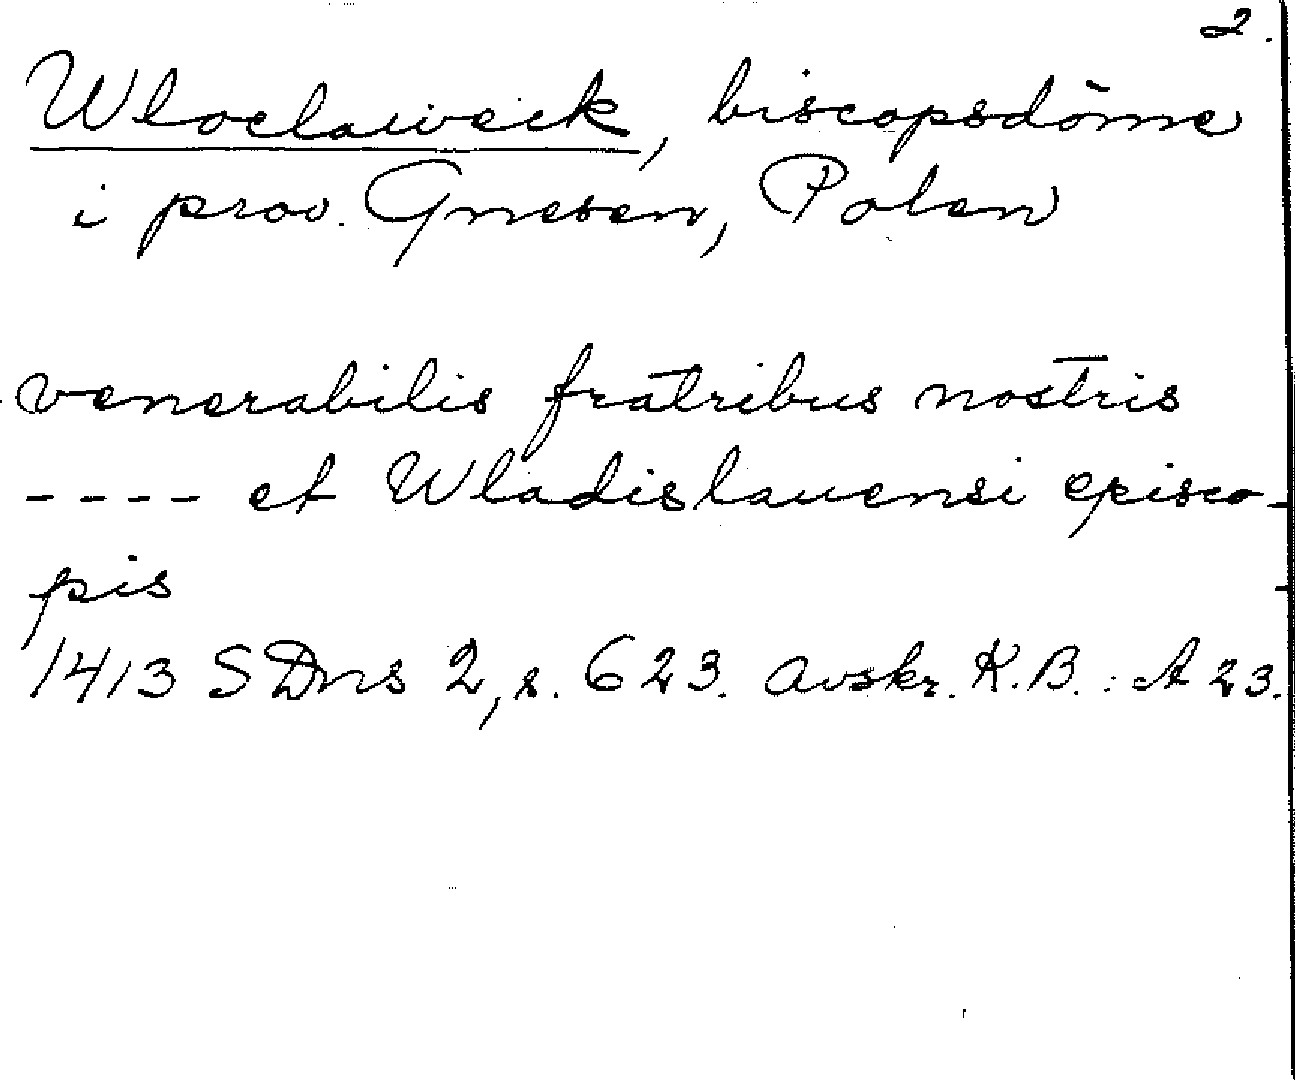 2.
Wloclaweick, biscopsdöme
i prov. Gnesen, Polen
venerabilis fratribus nostris
---- et Wladislauensi episco-
pis
1413 SDns 2, s. 623. Avskr. K.B.: A 23.